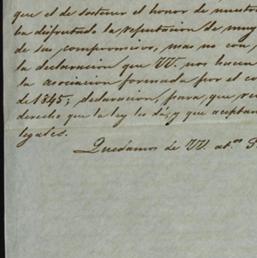 que el de sostener el honor de nuestro
ha disfrutado la reputacion de muy
de sus compromisos, mas no con
la declaracion que VV. nos hacen
la asociacion formada por el co
de 1845; declaracion, para, que
derecho que la ley les dá, y que aceptan
legales.
Quedamos de VV. at.os S